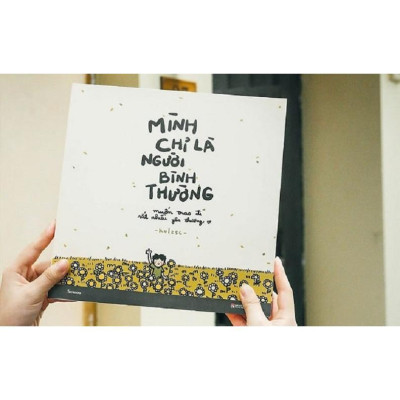 MÌNH
CHỈ LÀ
NGƯỜI
BÌNH
THƯỜNG
muốn trao đi
rất nhiều yêu thương